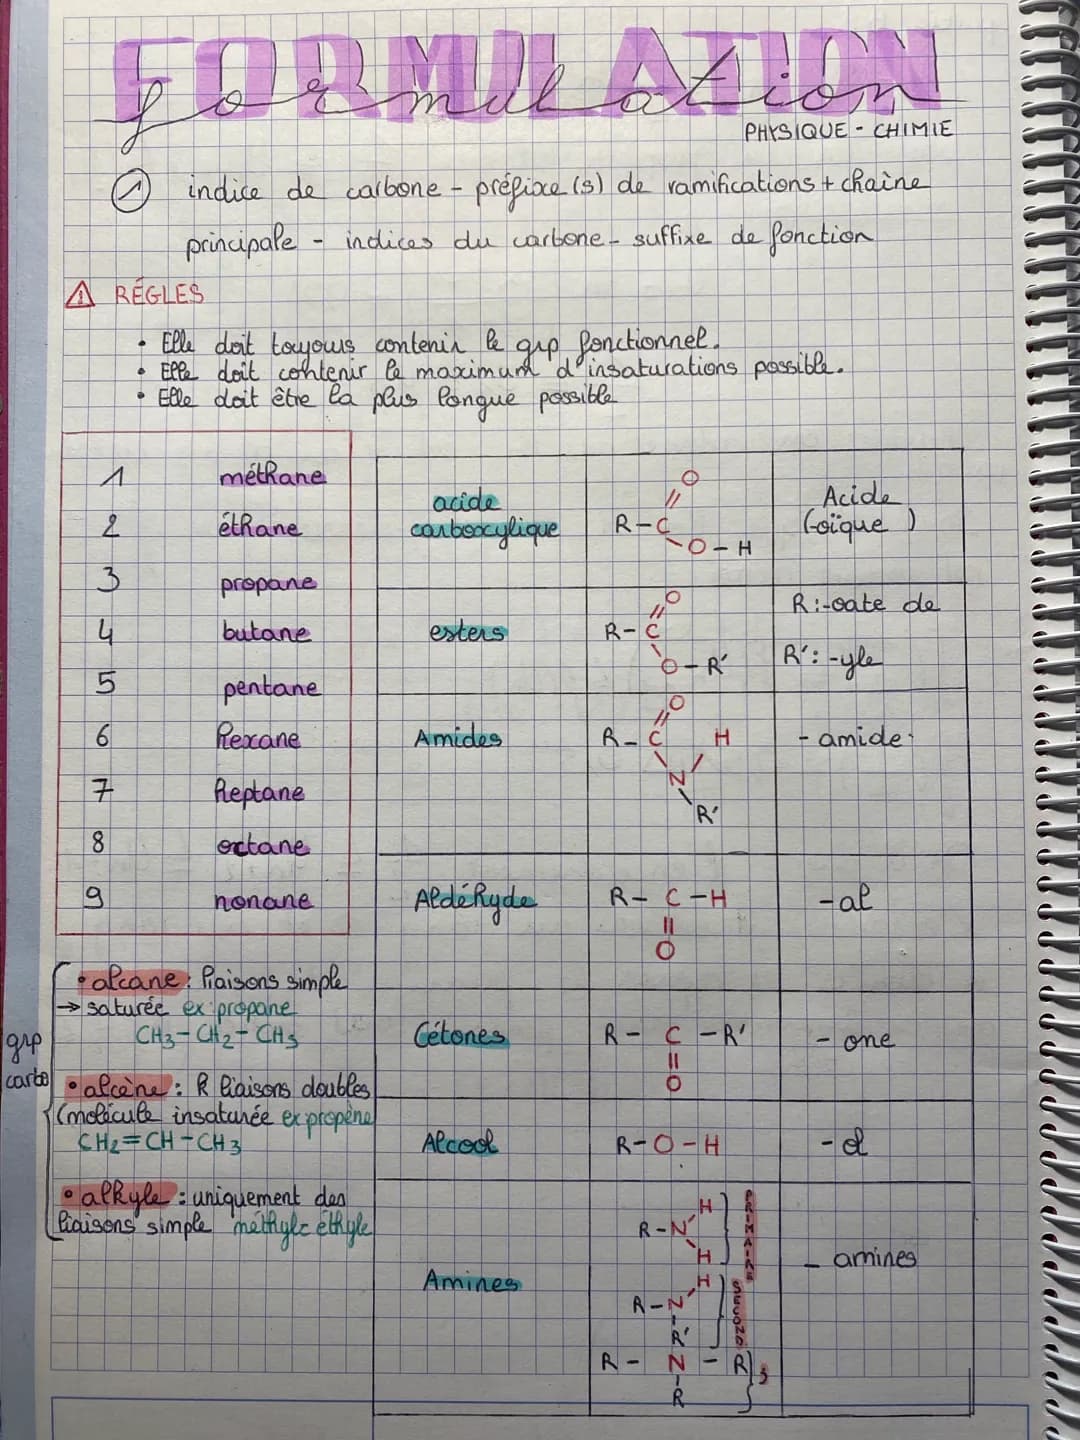 FORMULATION
formulation
PHYSIQUE - CHIMIE
① indice de carbone - préfixe(s) de ramifications + chaîne
principale - indices du carbone - suffixe de fonction
⚠ RÉGLES
• Elle doit toujours contenir le grp fonctionnel.
• Elle doit contenir le maximum d'insaturations possible.
• Elle doit être la plus longue possible
1 méthane
2 éthane
3 propane
4 butane
5 pentane
6 hexane
7 heptane
8 octane
9 nonane
• alcane : liaisons simple
→ saturée ex : propane
CH3 - CH2 - CH3
grp
carbo
• alcène : k liaisons doubles
(molécule insaturée ex propène
CH2 = CH - CH3
• alkyle : uniquement des
liaisons simple méthyle éthyle
acide
carboxylique
O
//
R - C
O - H
Acide
(-oïque )
esters
O
//
R - C
O - R'
R : -oate de
R' : -yle
Amides
O
//
R - C H
N
R'
- amide
Aldéhyde
R - C - H
||
O
- al
Cétones
R - C - R'
||
O
- one
Alcool
R - O - H
- ol
Amines
H
R - N
H
PRIMAIRE
H
R - N
R'
SECOND
R - N - R
R
3
- amines